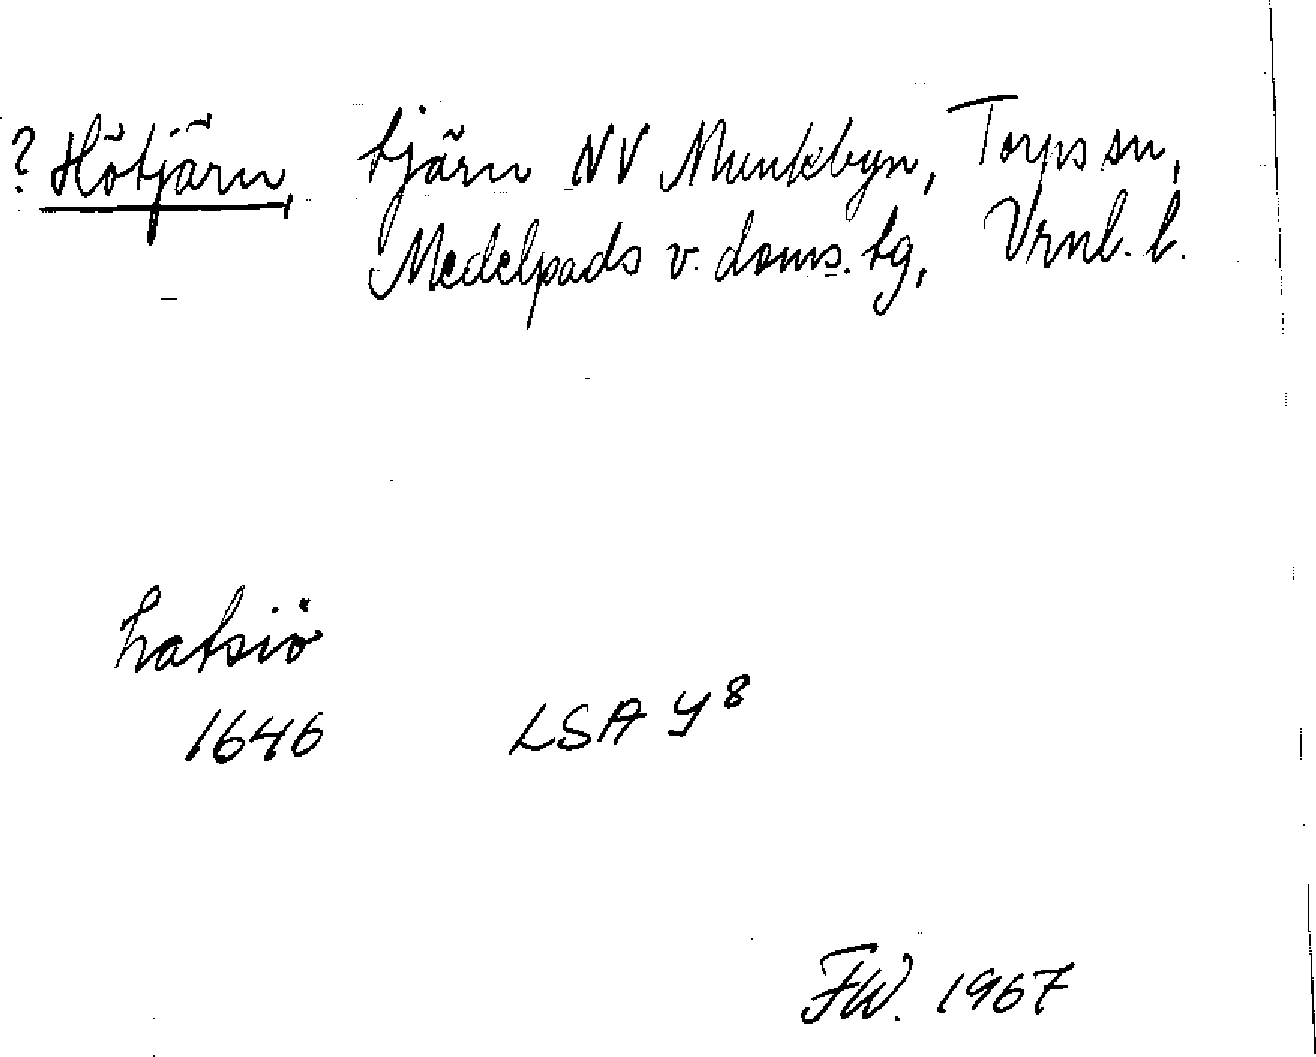 ? Hötjärn, tjärn NV Munkbyn, Torps sn,
Medelpads v. doms. tg, Vrnl. l.
hatsiö
1646 LSA Y8
FW. 1967